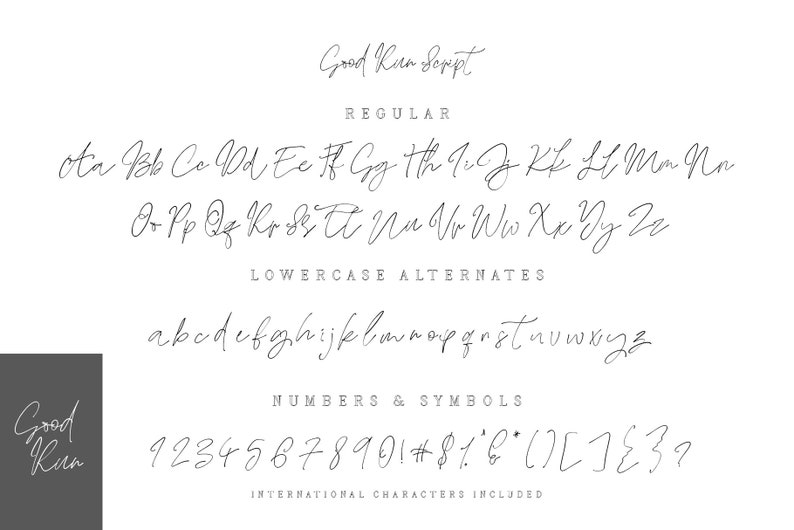 Good Run Script
REGULAR
Aa Bb Cc Dd Ee Ff Gg Hh Ii Jj Kk Ll Mm Nn
Oo Pp Qq Rr Ss Tt Uu Vv Ww Xx Yy Zz
LOWERCASE ALTERNATES
a b c d e f g h i j k l m n o p q r s t u v w x y z
NUMBERS & SYMBOLS
1 2 3 4 5 6 7 8 9 0 ! # $ % ^ & * ( ) [ ] { } ?
INTERNATIONAL CHARACTERS INCLUDED
Good
Run